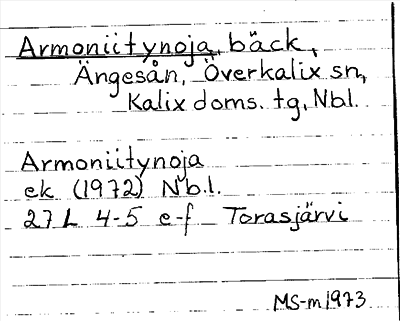 Armoniitynoja, bäck,
Ängesån, Överkalix sn,
Kalix doms. tg, Nbl.
Armoniitynoja
ek. (1972) Nb.l.
27 L 4-5 e-f Torasjärvi
MS-m 1973